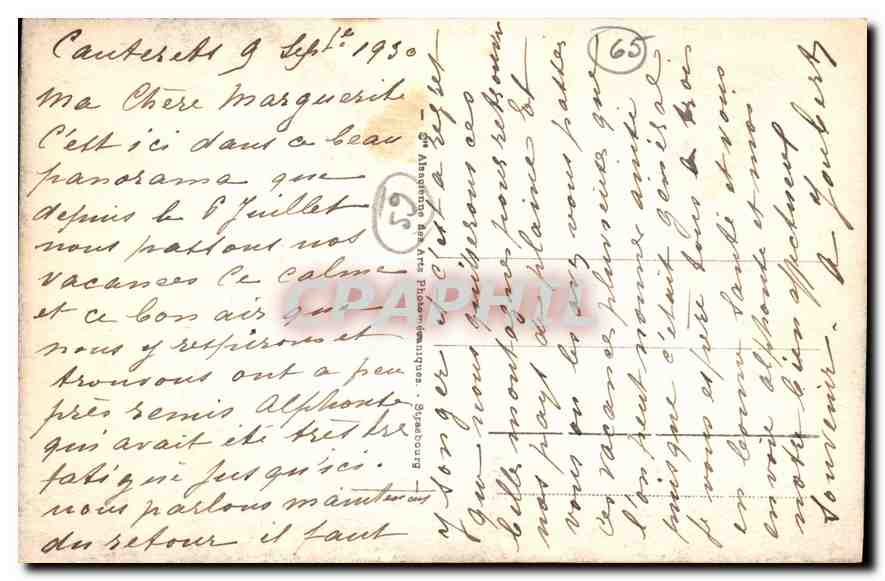 Cauterets 9 Septbre 1930
Ma Chère Marguerite
C'est ici dans ce beau
panorama que
depuis le 6 Juillet
nous passons nos
vacances Ce calme
et ce bon air que
nous y respirons et
trouvons ont a peu
près remis Alphonse
qui avait été très tre
fatigué jusqu'ici.
nous parlons maintenant
du retour il faut
y songer et c'est a regret
que nous quitterons ces
belles montagnes pour retrouver
nos pays de plaine Et
vous ou les avez vous passées
ces vacances pluvieuses que
l'on peut nommer ainsi
puisque c'était général
je vous espère tous trois
en bonne santé et vous
envoie Alphonse et moi
notre bien affectueux
souvenir. A Joubert
65
59
Cie Alsacienne des Arts Photomécaniques. - Strasbourg
CPAPHIL